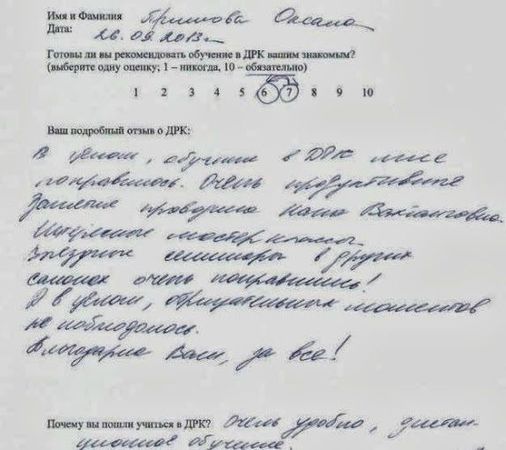 Имя и Фамилия Гришкова Оксана
Дата: 26.09.2013г.
Готовы ли вы рекомендовать обучение в ДРК вашим знакомым?
(выберите одну оценку; 1 – никогда, 10 – обязательно)
1 2 3 4 5 6 7 8 9 10
Ваш подробный отзыв о ДРК:
В целом, обучение в ДРК мне
понравилось. Очень продуктивные
Занятия проводила Нана Вахтанговна.
Интересные мастер классы.
семинары в других
салонах очень понравились!
в целом, отрицательных моментов
не наблюдалось.
Благодарю Вас, за все!
Почему вы пошли учиться в ДРК? Очень удобно, дистан-
ционное обучение.